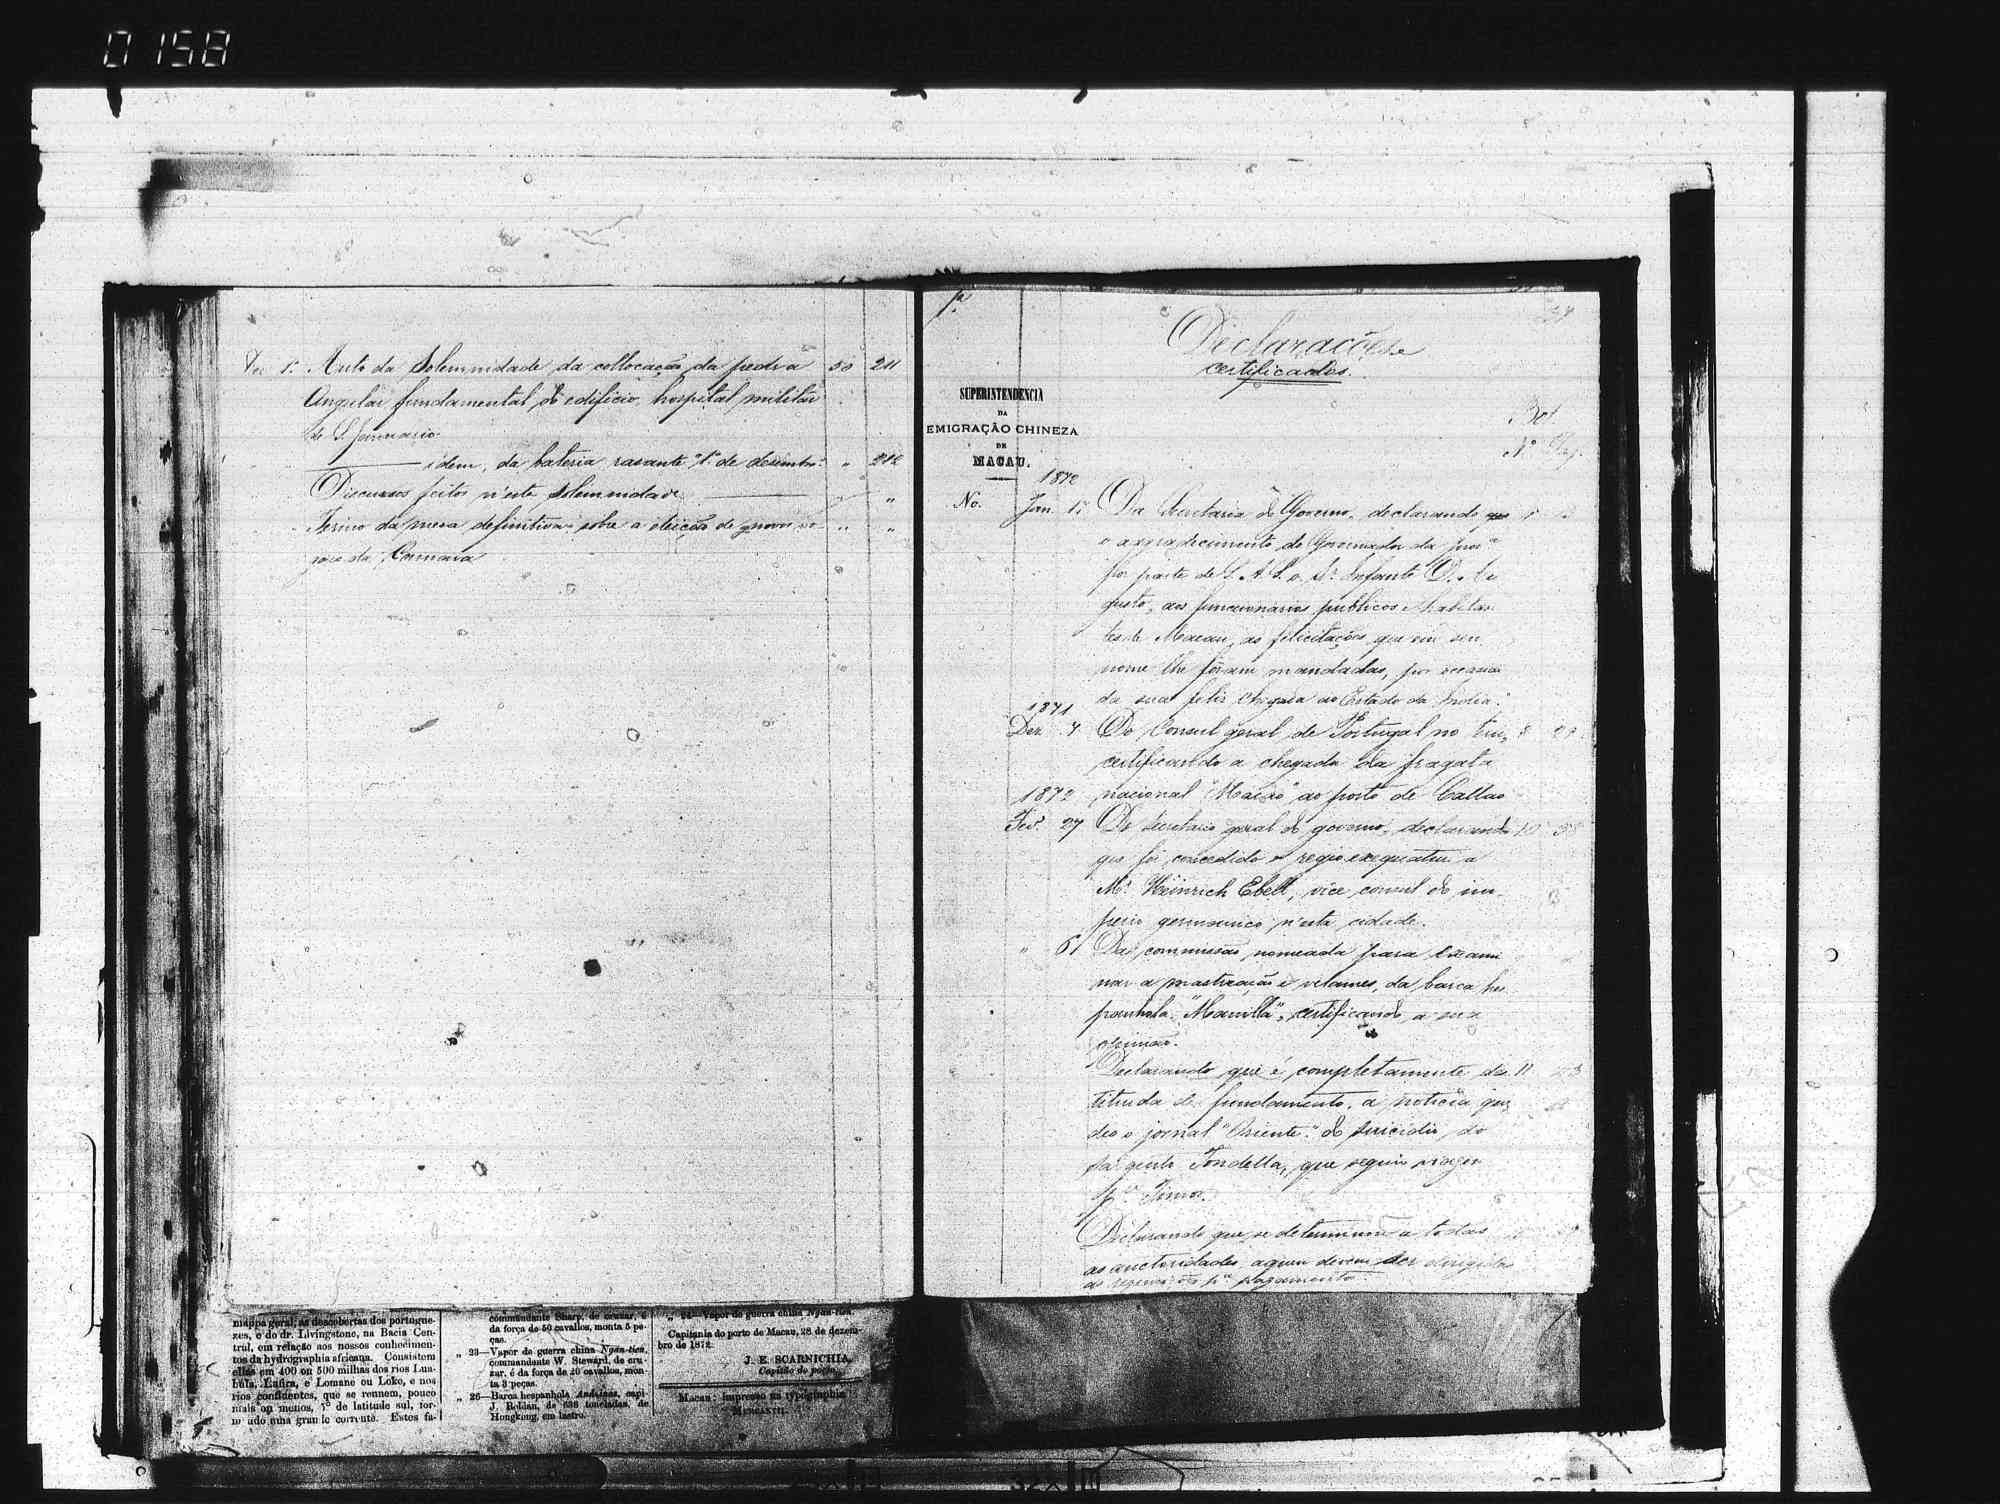 0158
Dez 1º Auto da Solemnidade da collocação da pedra 50 211
Angular fundamental do edificio, hospital militar
de S. Januario
idem, da bateria rasante "1º de dezembro" " 212
Discursos feitos n'esta solemnidade " "
Termo da mesa definitiva sobre a eleição de " "
da Camara
Declarações e
certificados.
SUPERINTENDENCIA
DA
EMIGRAÇÃO CHINEZA
DE
MACAU.
No.
Bol.
Nº Pag.
1872
Jan. 1º Da Secretaria do Governo, declarando que 1
o agradecimento do Governador da prov.ª
por parte de S. A. S. o Sr. Infante D. Au
gusto, aos funcionarios publicos e habitan
tes de Macau, as felicitações que em seu
nome lhe foram mandadas, por occasião
da sua feliz chegada ao Estado da India.
1871
Dez. 7 Do Consul geral de Portugal no 8
certificando a chegada da fragata
nacional "Macao" ao porto de Callao
1872
Fev. 27 Do Secretario geral do governo, declarando 10 38
que foi concedido o regio exequatur a
Mr. Heinrich Ebell, vice consul do im-
perio germanico n'esta cidade.
" 6 Da commissão, nomeada para exami
nar a mastreação e velames, da barca hes
panhola "Manilla", certificando a sua
opinião.
Declarando que é completamente des 11 43
tituida de fundamento, a noticia que
deo o jornal "Oriente" do suicidio do
sargento Tondella, que seguio viagem
p.ª Timor.
Declarando que se determinou a todas
as auctoridades aquem devem ser dirigidos
p.ª pagamento.
mappa geral, as descobertas dos portugue-
zes, e do dr. Livingstone, na Bacia Cen-
tral, em relação aos nossos conhecimen-
tos da hydrographia africana. Consistem
ellas em 400 ou 500 milhas dos rios Lua-
bula, Lufira, e Lomane ou Loke, e nos
rios confluentes, que se reunem, pouco
mais ou menos, 7° de latitude sul, for-
mando uma grande corrente. Estes fa-
commandante Sharp, de cruzar, é
da força de 50 cavallos, monta 5 pe-
ças.
„ 23—Vapor de guerra china Ngan-tien,
commandante W. Steward, de cru-
zar, é da força de 20 cavallos, mon-
ta 3 peças.
„ 26—Barca hespanhola Andaluza, capi.
J. Roldan, de 638 toneladas, de
Hongkong, em lastro.
Vapor de guerra china Ngan-tien.
Capitania do porto de Macau, 28 de dezem-
bro de 1872.
J. E. SCARNICHIA,
Capitão do porto.
Macau: Impresso na typographia
MERCANTIL